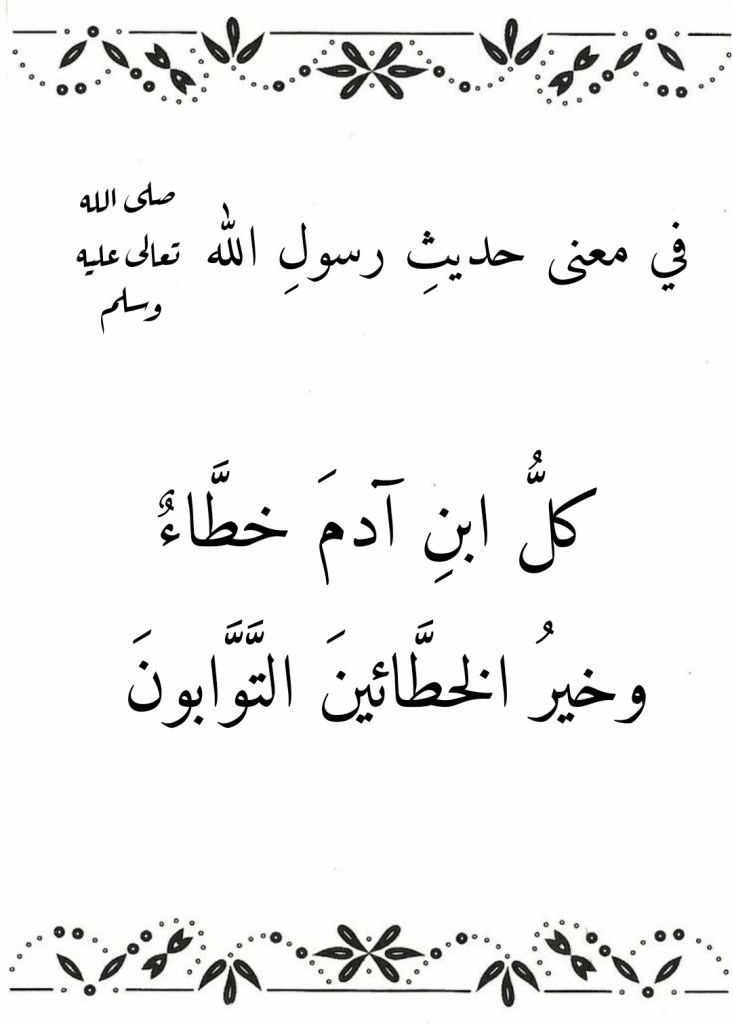 في معنى حديثِ رسولِ الله صلى الله تعالى عليه وسلم
كلُّ ابنِ آدمَ خطَّاءٌ
وخيرُ الخطَّائينَ التَّوَّابونَ